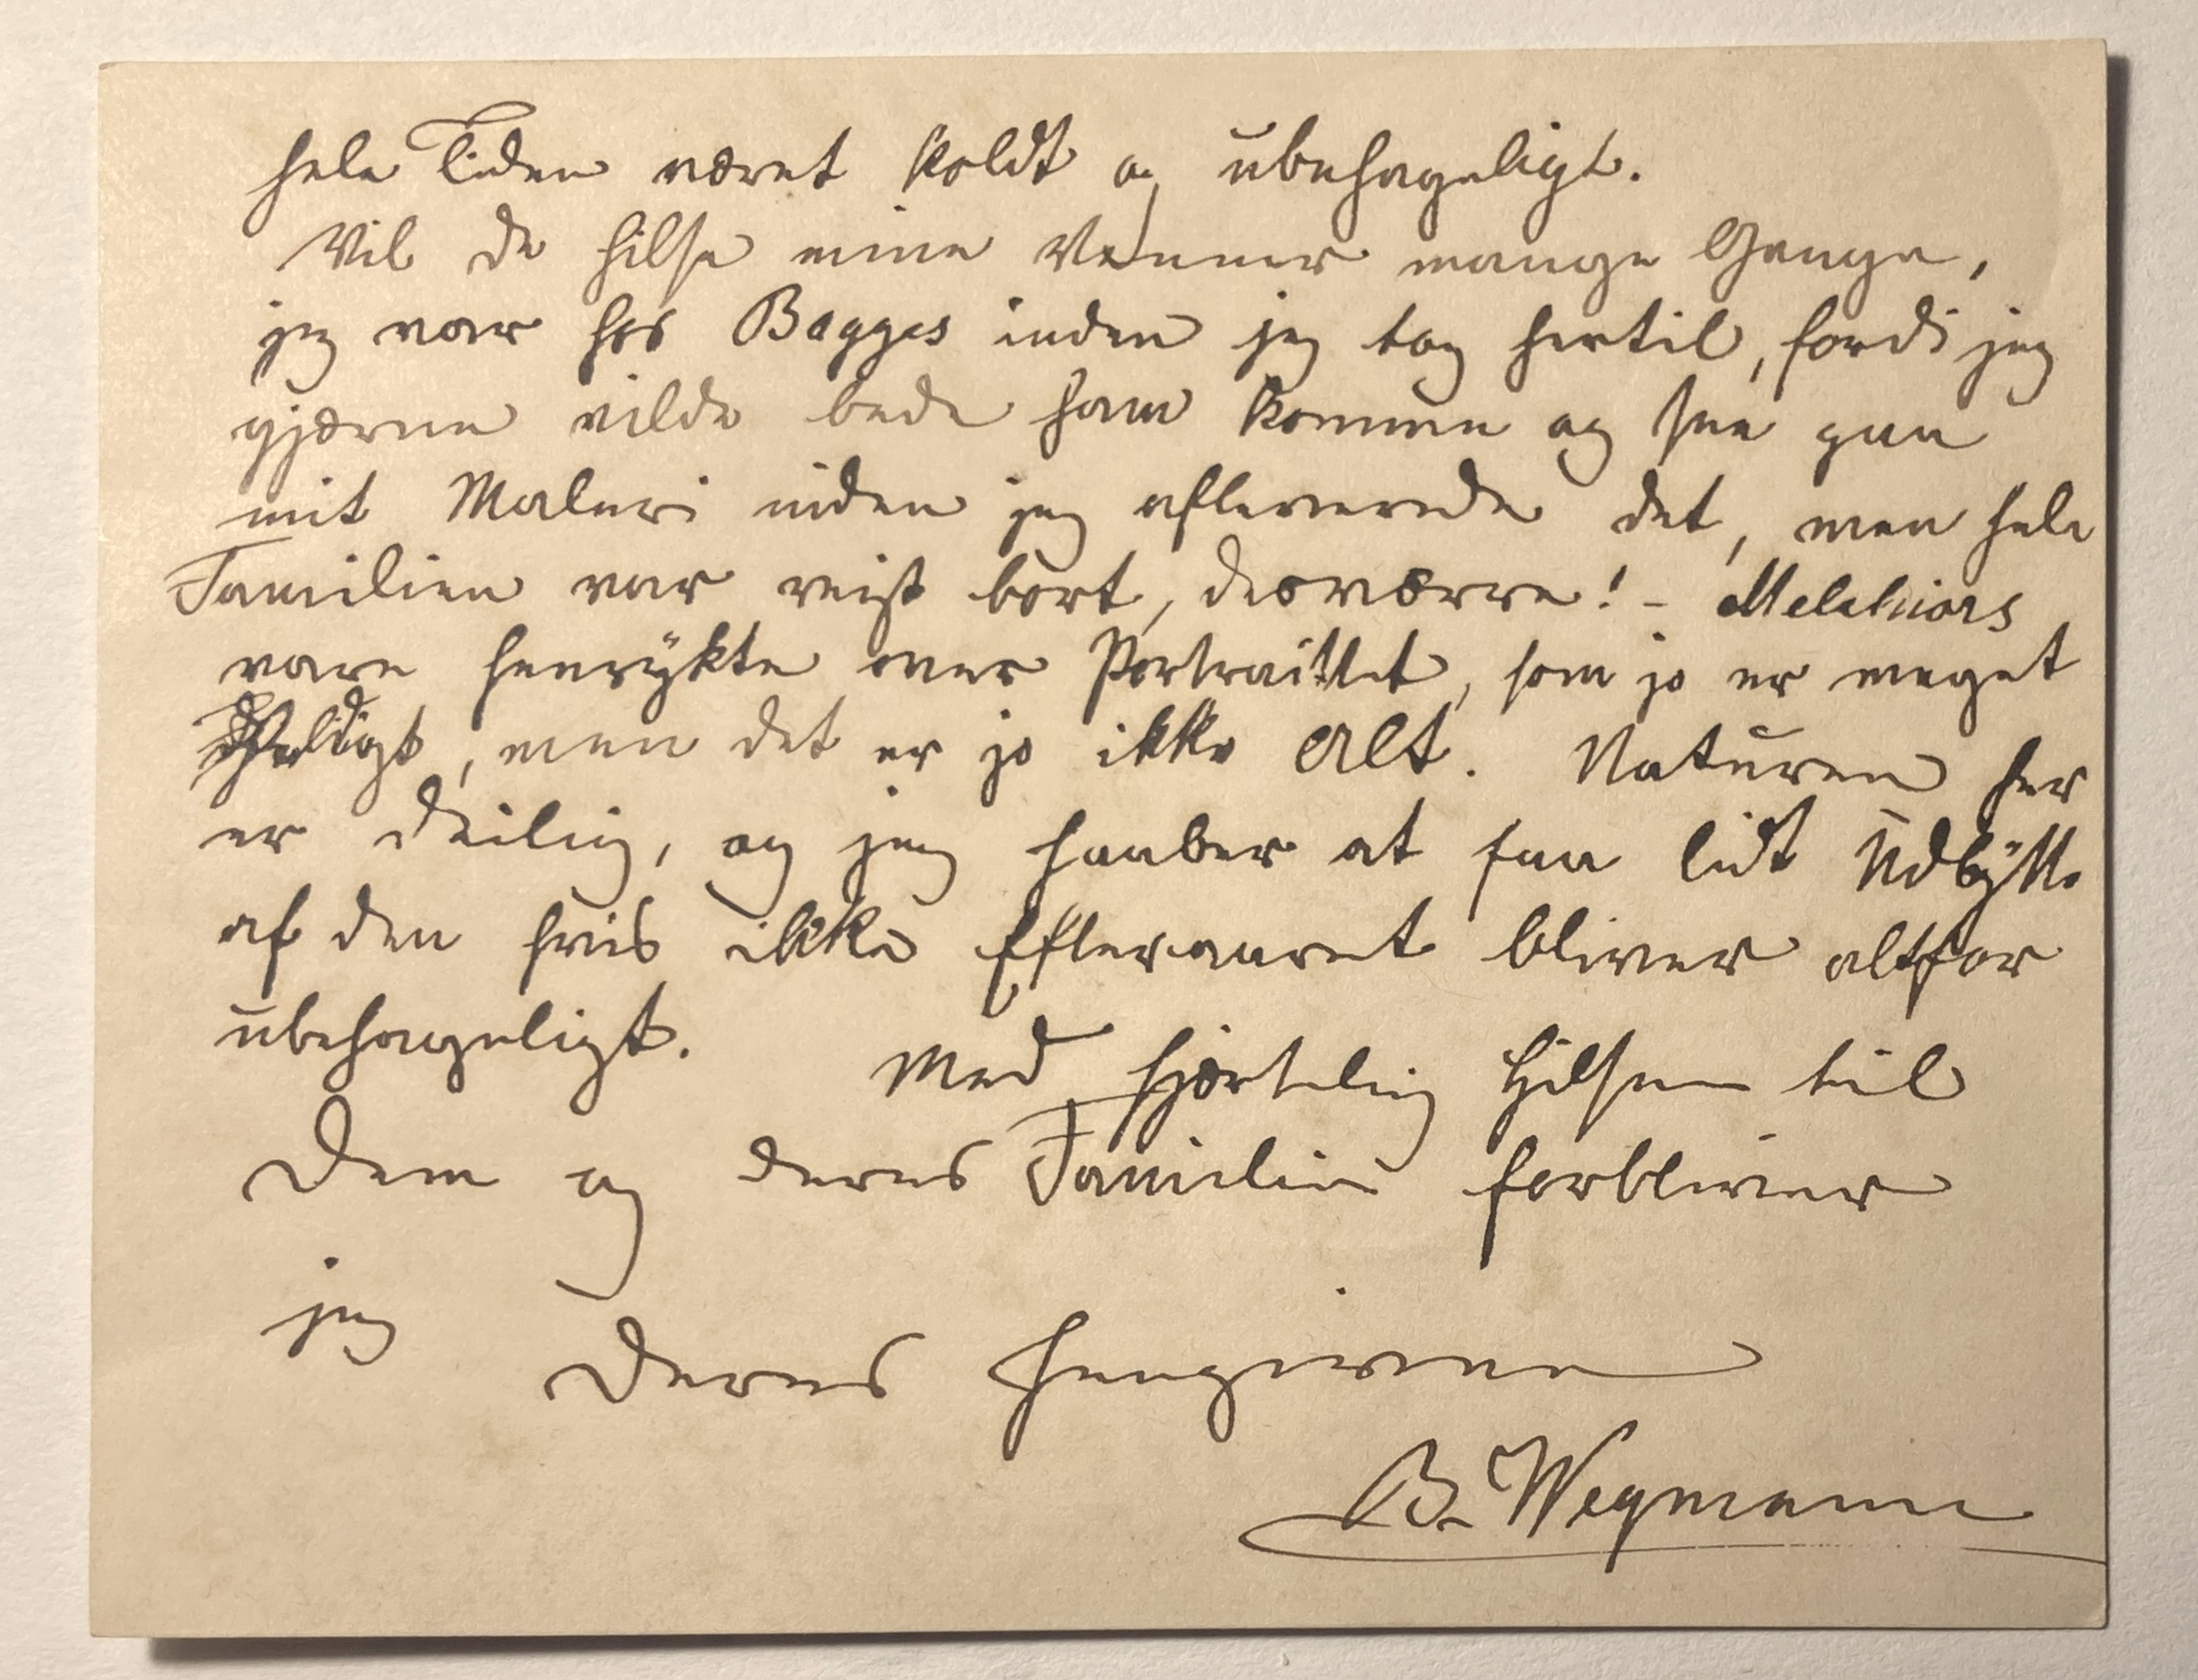 hele Tiden været koldt og ubehageligt.
Vil De hilse mine Venner mange Gange,
jeg var hos Bagges inden jeg tog hertil, fordi jeg
gjærne vilde bede ham komme og see paa
mit Maleri inden jeg afleverede det, men hele
Familien var reist bort, desværre! - Melchiors
vare henrykte over Portraittet, som jo er meget
, men det er jo ikke Alt. Naturen her
er deilig, og jeg haaber at faa lidt Udbytte
af den hvis ikke Efteraaret bliver altfor
ubehageligt. Med hjærtelig Hilsen til
Dem og Deres Familie forbliver
jeg
Deres hengivne
B. Wegmann